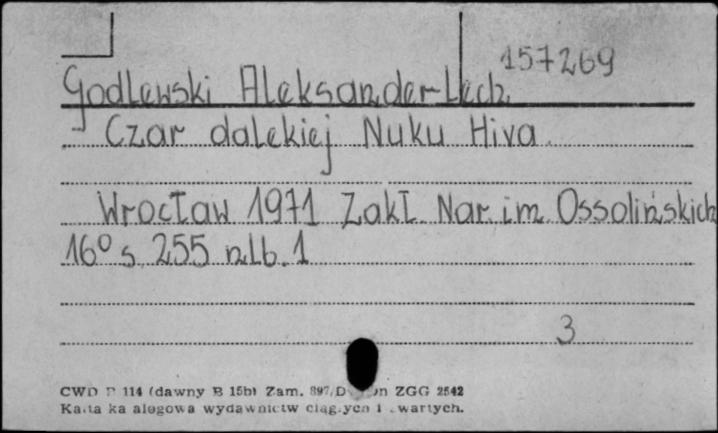 157269
Godlewski Aleksander-Lech
Czar dalekiej Nuku Hiva
Wrocław 1971 Zakł. Nar. im. Ossolińskich
16° s. 255 nlb. 1
3
CWD 114 (dawny B 15b) Zam. 897/D ZGG 2542
wydawnictw